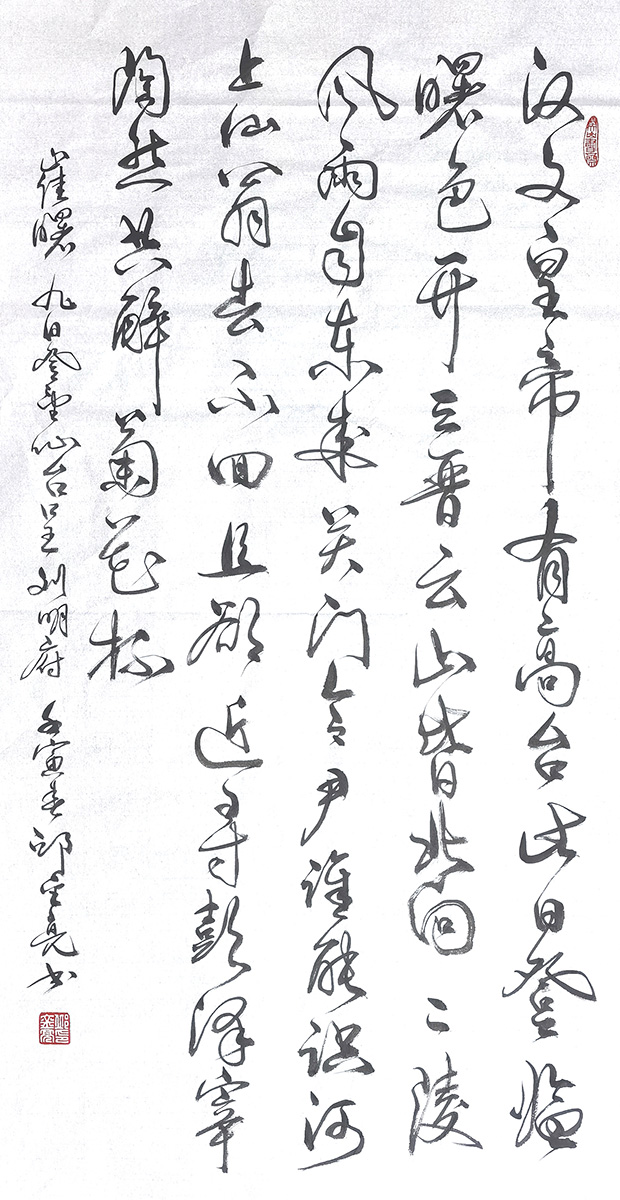 汉文皇帝有高台此日登临
曙色开三晋云山皆北向二陵
风雨自东来关门令尹谁能识河
上仙翁去不回且欲近寻彭泽宰
陶然共醉菊花杯
崔曙 九日登望仙台呈刘明府 壬寅春邱亮书